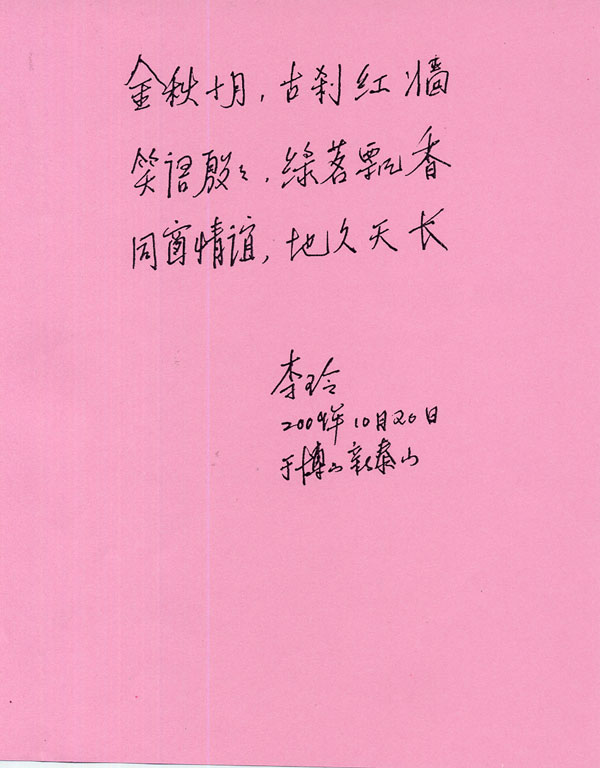 金秋十月，古刹红墙
笑语殷殷，绿茗飘香
同窗情谊，地久天长
李玲
2009年10月20日
于博山新泰山